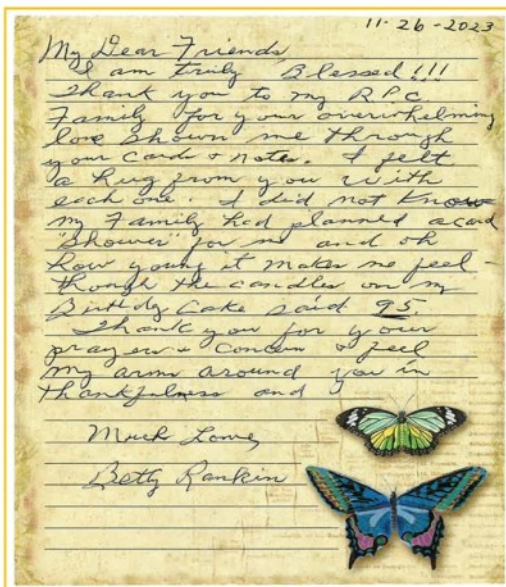 11-26-2023
My Dear Friends,
I am truly Blessed!!!
Thank you to my RPC
Family for your overwhelming
love shown me through
your cards + notes. I felt
a hug from you with
each one. I did not know
my Family had planned a card
"Shower" for me and oh
how young it makes me feel -
though the candles on my
Birthday Cake said 95.
Thank you for your
prayers + concern + feel
my arms around you in
thankfulness and
Much Love,
Betty Rankin